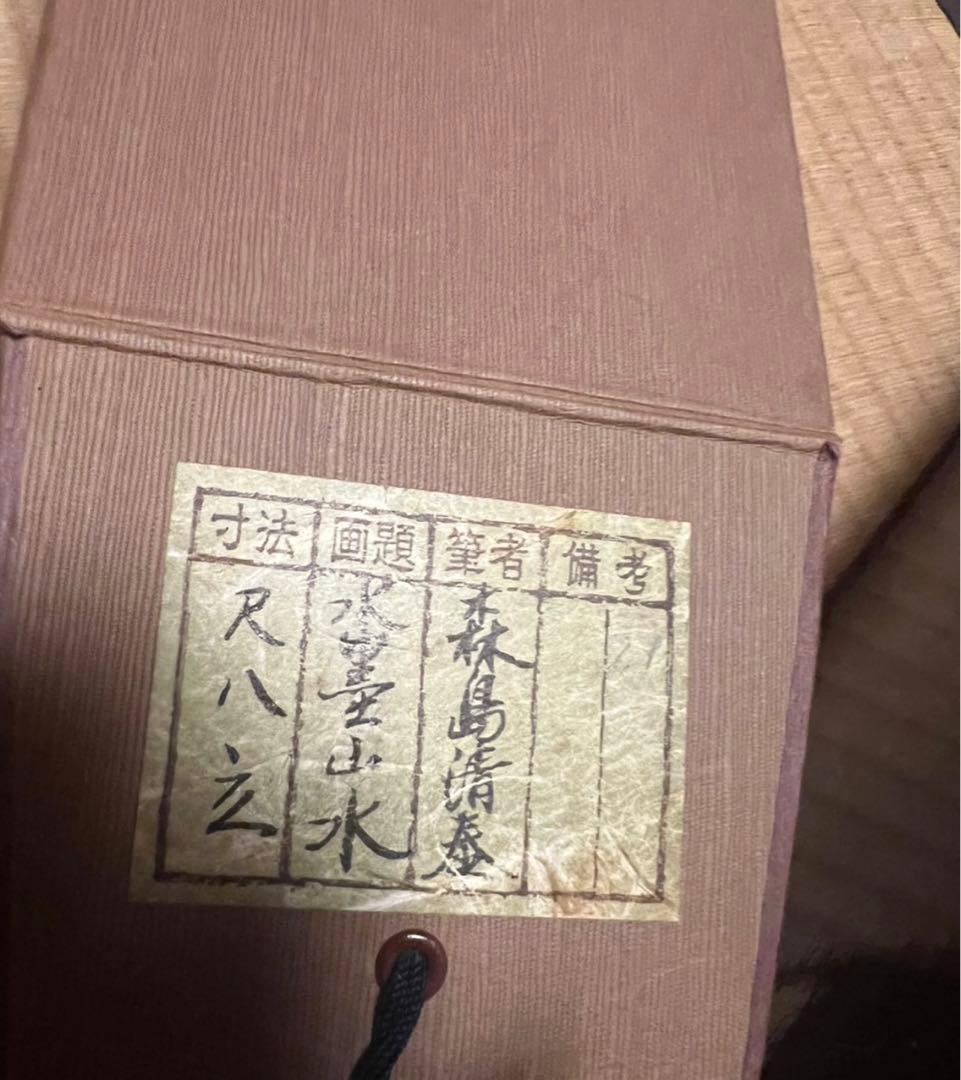 寸法
尺八立
画題
水墨山水
筆者
森島清泰
備考